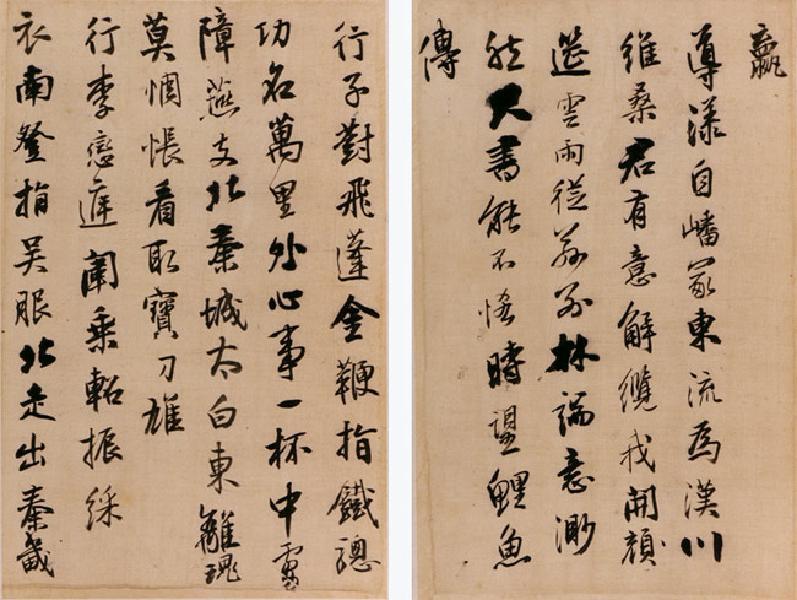 嬴
導漾自嶓冢東流為漢川
維桑君有意解纜我開顏
筵雲雨從茲別林端意渺
然尺書能不悋時望鯉魚
傳
行子對飛蓬金鞭指鐵驄
功名萬里外心事一杯中虜
障燕支北秦城太白東離魂
莫惆悵看取寶刀雄
行李戀庭闈乘軺振綵
衣南登指吳服北走出秦畿